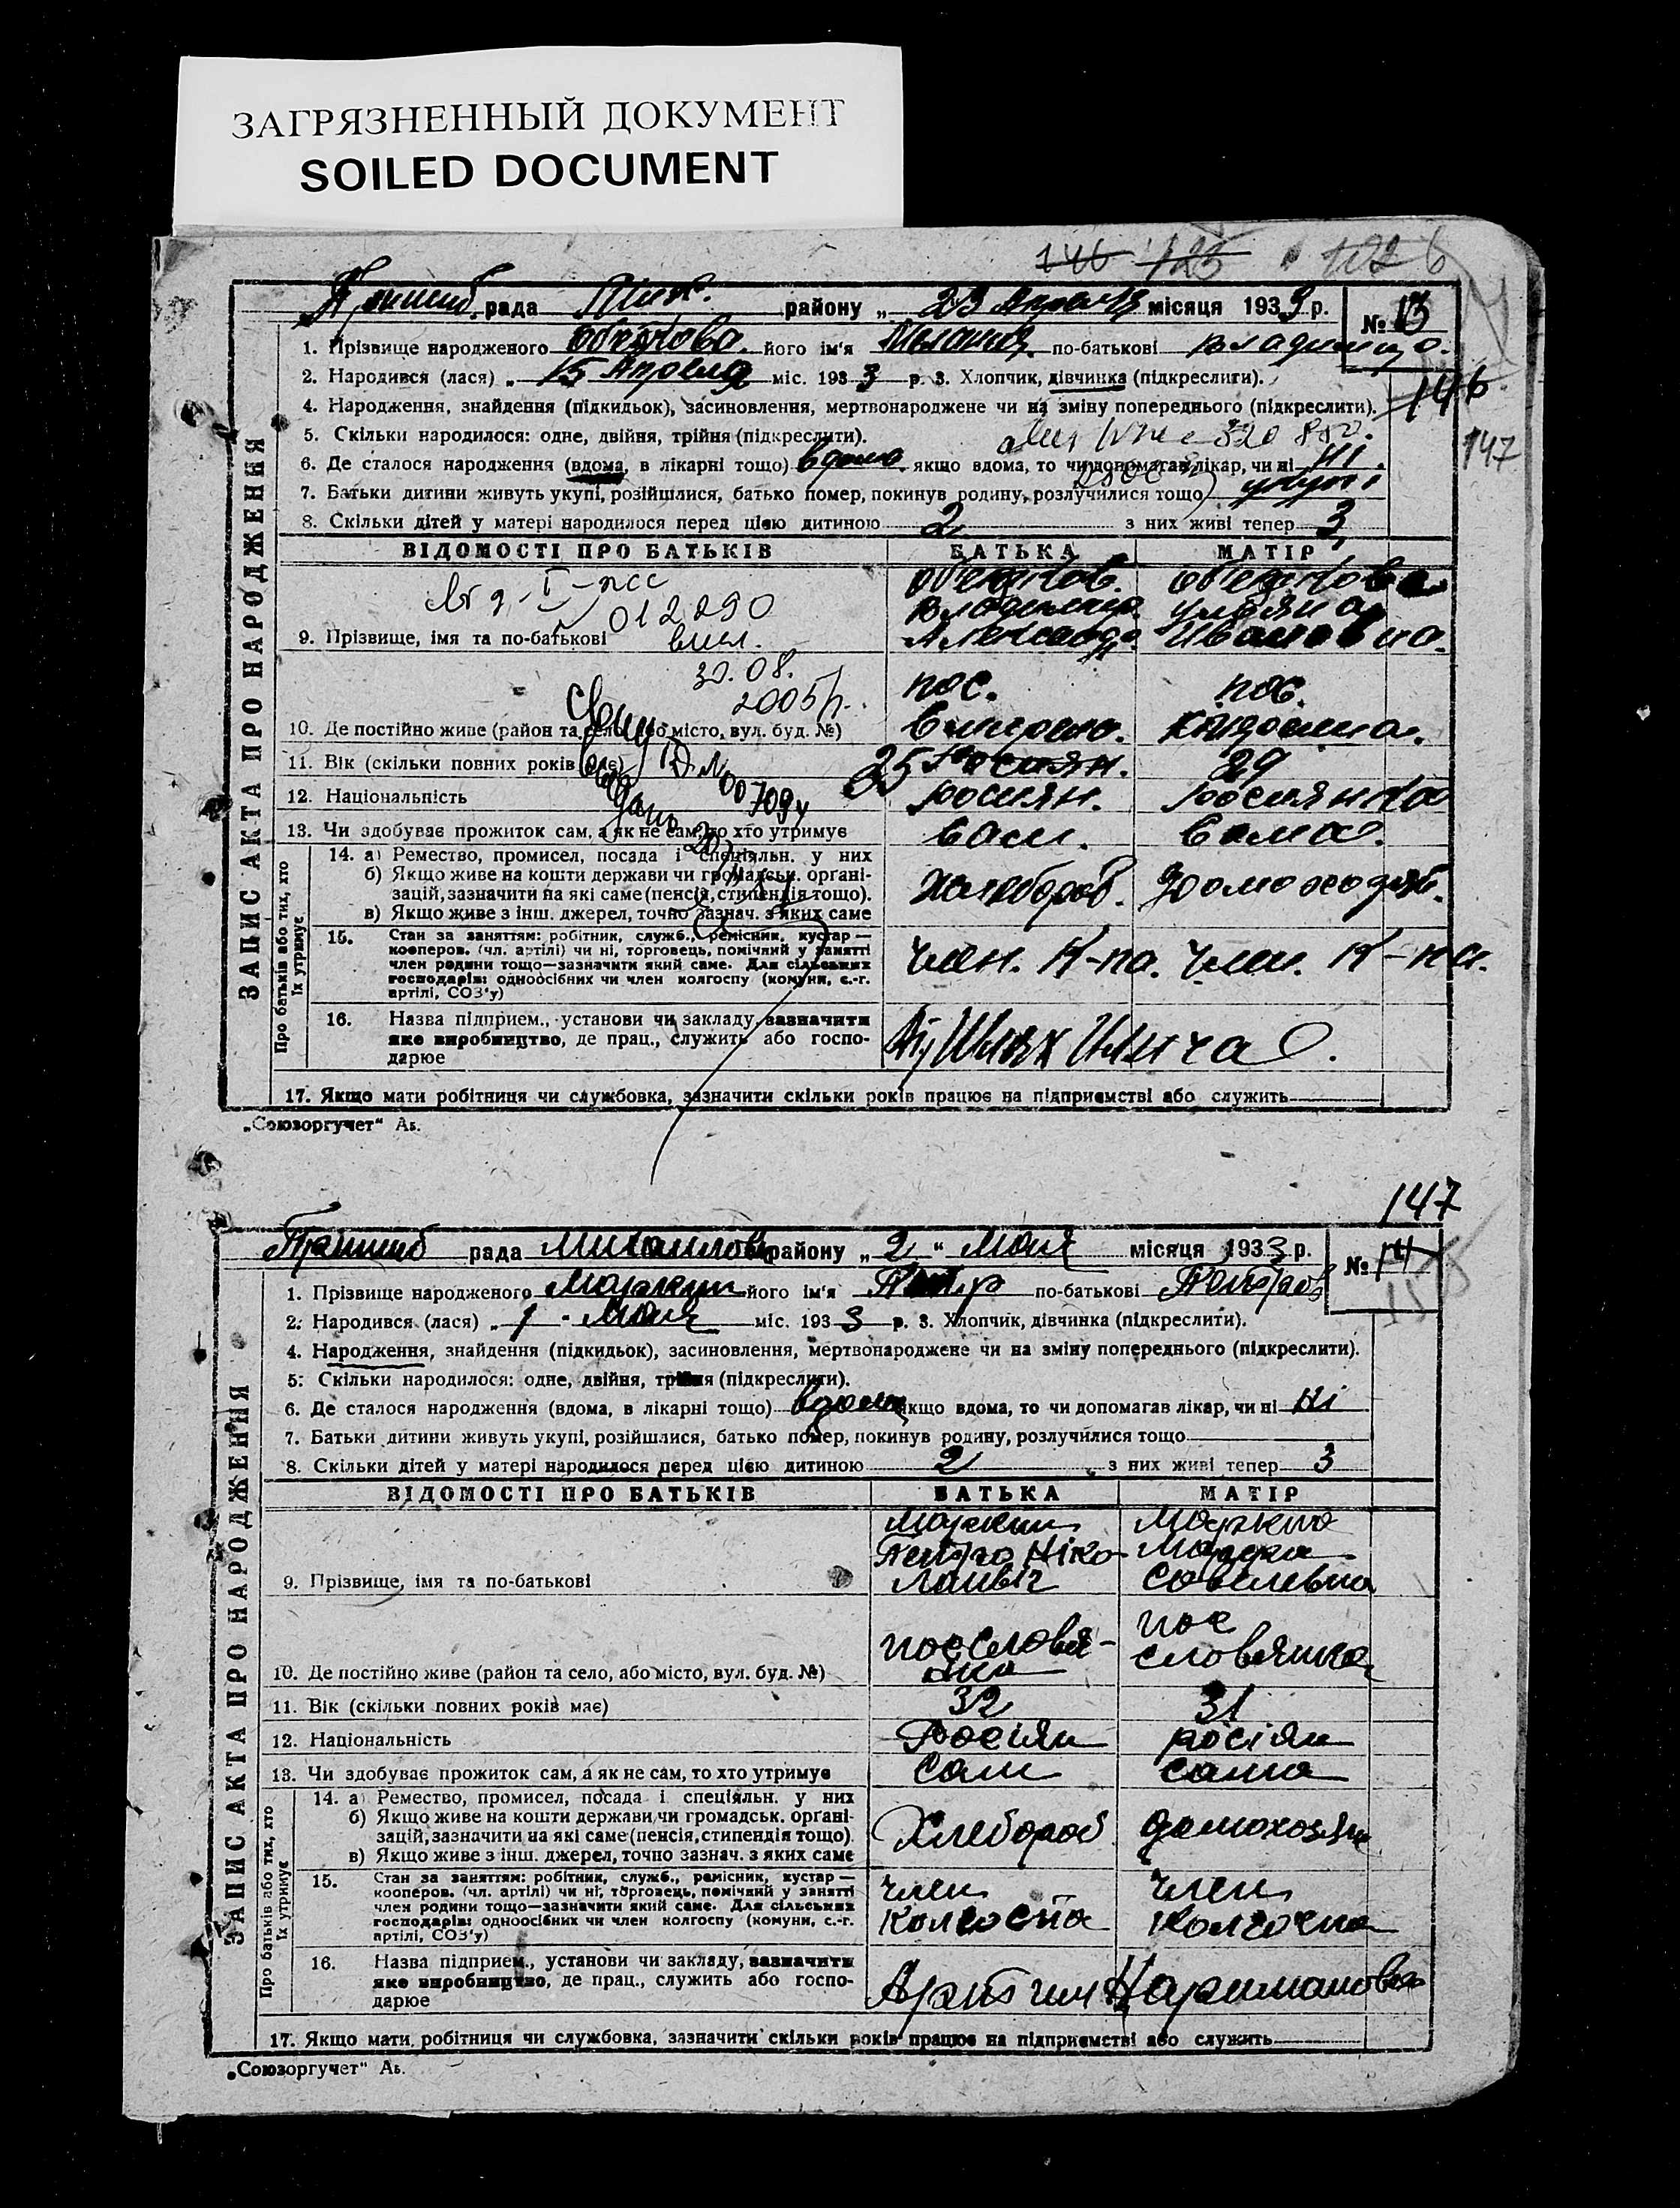 ЗАГРЯЗНЕННЫЙ ДОКУМЕНТ
SOILED DOCUMENT
146 125
рада Мих. району „ 23 місяця 1933 р.
№ 13
1. Прізвище народженого його ім'я по-батькові
2. Народився (лася) „ 15 Апреля міс. 1933 р. 3. Хлопчик, дівчинка (підкреслити).
146
4. Народження, знайдення (підкидьок), засиновлення, мертвонароджене чи на зміну попереднього (підкреслити).
5. Скільки народилося: одне, двійня, трійня (підкреслити).
147
6. Де сталося народження (вдома, в лікарні тощо) вдома якщо вдома, то чи допомагав лікар, чи ні ні.
7. Батьки дитини живуть укупі, розійшлися, батько помер, покинув родину, розлучилися тощо укупі
8. Скільки дітей у матері народилося перед цією дитиною 2 з них живі тепер 3
ЗАПИС АКТА ПРО НАРОДЖЕННЯ
ВІДОМОСТІ ПРО БАТЬКІВ БАТЬКА МАТІР
012290
9. Прізвище, імя та по-батькові Ивановна.
30.08.
2005р.
пос. пос.
10. Де постійно живе (район та село, або місто, вул. буд. №)
11. Вік (скільки повних років має) 25 29
12. Національність росиян. росиянка
13. Чи здобуває прожиток сам, а як не сам, то хто утримує сам. сама.
Про батьків або тих, хто їх утримує
14. а) Ремество, промисел, посада і спеціяльн. у них
б) Якщо живе на кошти держави чи громадськ. органі-
зацій, зазначити на які саме (пенсія, стипендія тощо).
в) Якщо живе з інш. джерел, точно зазнач. з яких саме
хлебороб. домохозяй.
15. Стан за заняттям: робітник, служб., ремісник, кустар—
кооперов. (чл. артілі) чи ні, торговець, помічний у занятті
член родини тощо—зазначити який саме. Для сільських
господарів: одноосібних чи член колгоспу (комуни, с.-г.
артілі, СОЗ'у)
член. К-па. член. К-па.
16. Назва підприєм., установи чи закладу, зазначити
яке виробництво, де прац., служить або госпо-
дарює
Шлях Илича
17. Якщо мати робітниця чи службовка, зазначити скільки років працює на підприємстві або служить
„Союзоргучет“ Аь.
147
Пришиб рада Михайлов району „ 2 “ Мая місяця 1933 р.
№ 14
1. Прізвище народженого Маркин його ім'я Петр по-батькові Петров
2. Народився (лася) „ 1 - Мая міс. 1933 р. 3. Хлопчик, дівчинка (підкреслити).
4. Народження, знайдення (підкидьок), засиновлення, мертвонароджене чи на зміну попереднього (підкреслити).
5. Скільки народилося: одне, двійня, трійня (підкреслити).
6. Де сталося народження (вдома, в лікарні тощо) вдома якщо вдома, то чи допомагав лікар, чи ні ні
7. Батьки дитини живуть укупі, розійшлися, батько помер, покинув родину, розлучилися тощо
8. Скільки дітей у матері народилося перед цією дитиною 2 з них живі тепер 3
ЗАПИС АКТА ПРО НАРОДЖЕННЯ
ВІДОМОСТІ ПРО БАТЬКІВ БАТЬКА МАТІР
Маркин Маркина
Петро Ніко-
9. Прізвище, імя та по-батькові лаивіч Савелевна
пос Словя- пос
нка Словянка
10. Де постійно живе (район та село, або місто, вул. буд. №)
11. Вік (скільки повних років має) 32 31
12. Національність Росіян росіян
13. Чи здобуває прожиток сам, а як не сам, то хто утримує Сам сама
Про батьків або тих, хто їх утримує
14. а) Ремество, промисел, посада і спеціяльн. у них
б) Якщо живе на кошти держави чи громадськ. органі-
зацій, зазначити на які саме (пенсія, стипендія тощо).
в) Якщо живе з інш. джерел, точно зазнач. з яких саме
Хлебороб домохозяй
15. Стан за заняттям: робітник, служб., ремісник, кустар—
кооперов. (чл. артілі) чи ні, торговець, помічний у занятті
член родини тощо—зазначити який саме. Для сільських
господарів: одноосібних чи член колгоспу (комуни, с.-г.
артілі, СОЗ'у)
член член
Колгоспа Колгоспа
16. Назва підприєм., установи чи закладу, зазначити
яке виробництво, де прац., служить або госпо-
дарює
Нариманова
17. Якщо мати робітниця чи службовка, зазначити скільки років працює на підприємстві або служить
„Союзоргучет“ Аь.